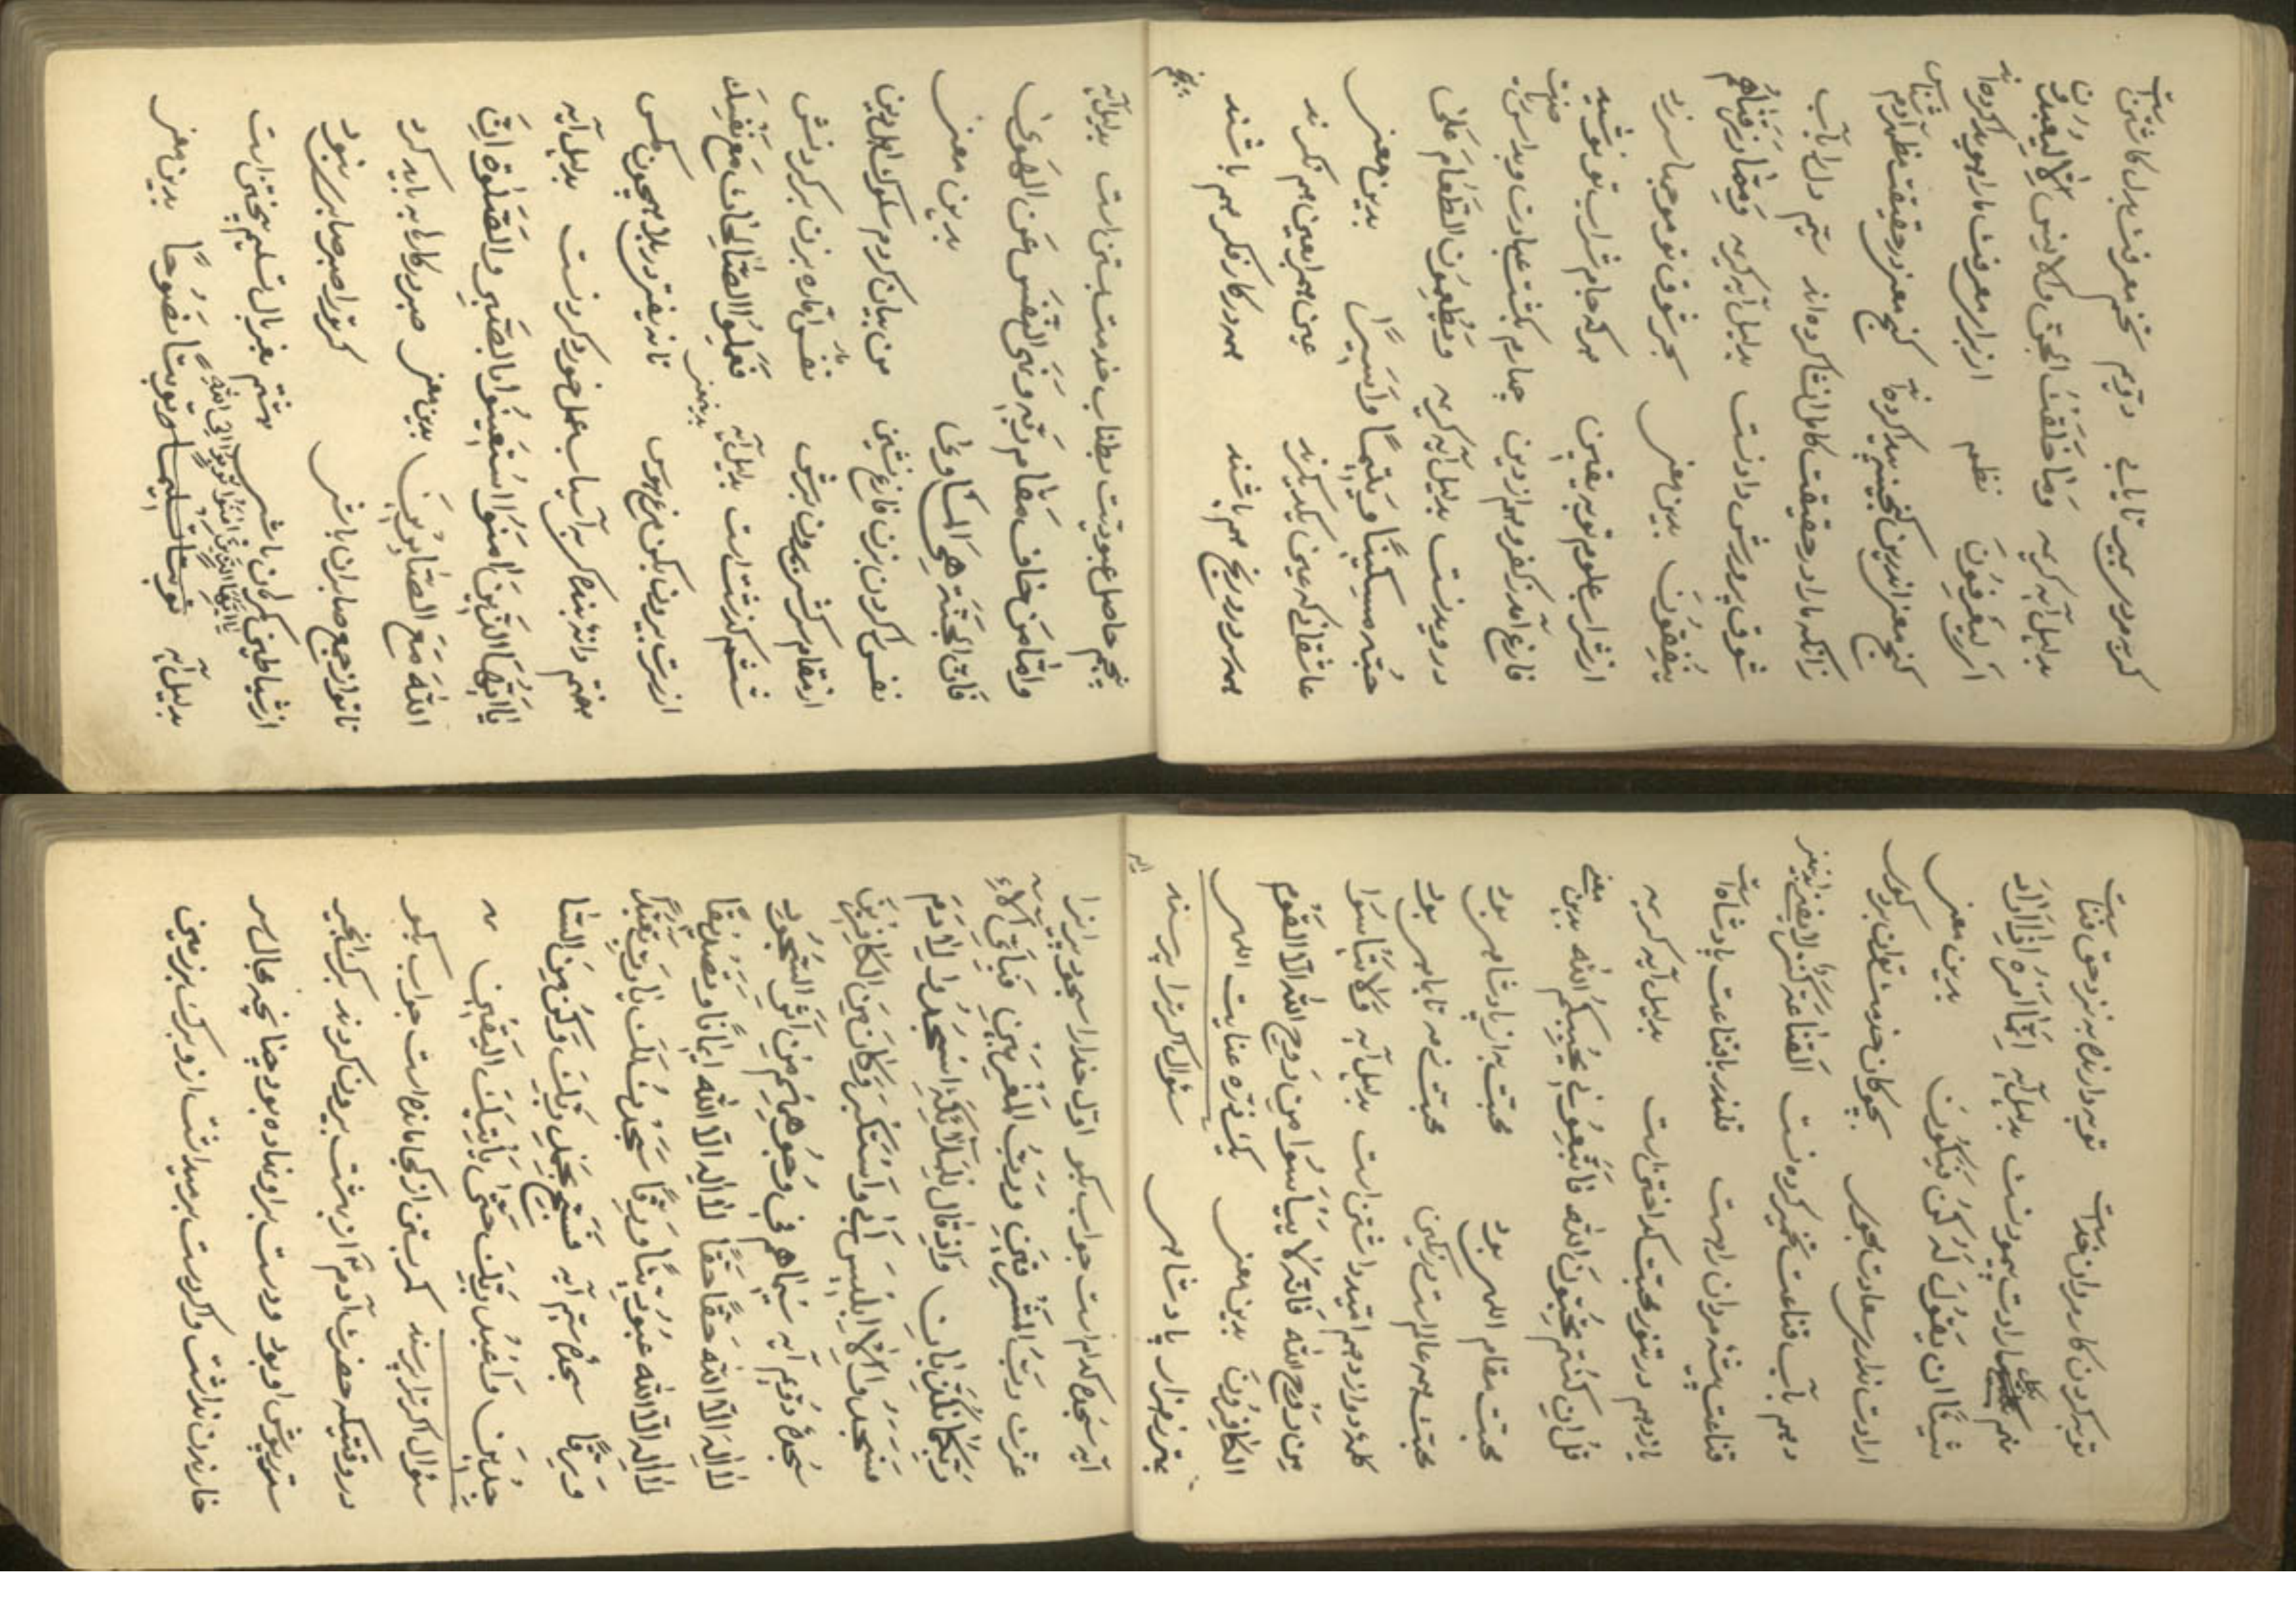 کر مردی سر تا بابی دویم تخم معرفت بدل کاشتن است
بدلیل آیه کریمه وَمَا خَلَقْتُ الْجِنَّ وَالْاِنْسَ اِلَّا لِیَعْبُدُونِ
اَیْ لِیَعْرِفُونَ نظم از برای معرفت ما را هویدا کرده‌اند
کنج مغز اندرین گنجینه پیدا کرده‌اند کنج مغز در حقیقت مظهر آدم شناس
زانکه ما را در حقیقت کامل انشا کرده‌اند سیم دل را بآب
شوق پرورش دادنست بدلیل آیه کریمه وَمِمَّا رَزَقْنَاهُمْ
یُنْفِقُونَ بدین معنی بحر شوق تو موجها سر زد
از شراب علوم تو به یقین هر که جام شراب تو نوشید
فارغ آمد ز کفر و هم از دین چهارم بکشت عبادت و بداس ریاضت
درویدنست بدلیل آیه کریمه وَیُطْعِمُونَ الطَّعَامَ عَلٰی
حُبِّهِ مِسْکِینًا وَیَتِیمًا وَاَسِیرًا بدین معنی
عاشقانی که عین یکدیگرند عین همرا بعین هم نگرند
همه در درد و رنج هم باشند همه در کار و فکر هم باشند
پنجم
پنجم حاصل عبودیت بطناب خدمت بستن است بدلیل آیه
وَاَمَّا مَنْ خَافَ مَقَامَ رَبِّهِ وَنَهَی النَّفْسَ عَنِ الْهَوٰی
فَاِنَّ الْجَنَّةَ هِیَ الْمَأْوٰی بدین معنی
نفس را گردن بزن فارغ نشین من بیان کردم سلوک اهل دین
از مقام سرکشی بیرون برش نفس اماره بزن بر گردنش
ششم گذشت است بدلیل آیه فَعَمِلُوا الصَّالِحَاتِ مَعَ نَفْسِکَ
بدین معنی
از سرت بیرون بکن مزغ هوس تا نه بیفتی در بلا همچون مکس
هفتم دانهٔ بنده کر به آسیاب عمل خورد کردنست بدلیل آیه
یَا اَیُّهَا الَّذِینَ اٰمَنُوا اسْتَعِینُوا بِالصَّبْرِ وَالصَّلٰوةِ اِنَّ
اللّٰهَ مَعَ الصَّابِرِینَ بدین معنی صبر در کارها بباید کرد
تا تو از جمع صابران باشی گر تو را صبر صابری نبود
از شیاطین کمرهان باشی هشتم بغربال تسلیم بیختن است
یَا اَیُّهَا الَّذِینَ اٰمَنُوا تُوبُوا اِلَی اللّٰهِ
بدلیل آیه توبةً نَصُوحًا بدین معنی
توبه کردن کار مردان خداست توبه دارنده به نزد حق فناست
نهم بارادت پیمودنست بدلیل آیه اِنَّمَا اَمْرُهُ اِذَا اَرَادَ
شَیْئًا اَنْ یَقُولَ لَهُ کُنْ فَیَکُونُ بدین معنی
ارادت ندارد سعادت مجوی بچوکان خدمت توان برد گوی
دهم بآب قناعت خمیر کردنست اَلْقَنَاعَةُ کَنْزٌ لَا یَفْنٰی بدین معنی
قناعت پیشهٔ مردان راهست قلندر با قناعت پادشاه است
یازدهم در تنور محبت کداختن است بدلیل آیه کریمه
قُلْ اِنْ کُنْتُمْ تُحِبُّونَ اللّٰهَ فَاتَّبِعُونِی یُحْبِبْکُمُ اللّٰهُ بدین معنی
محبت مقام الهی بود محبت به از پادشاهی بود
محبت همه عالم است رنکین محبت ز مه تا بماهی بود
کلمهٔ دوازدهم امید داشتن است بدلیل آیه وَلَا تَیْاَسُوا
مِنْ رَوْحِ اللّٰهِ فَاِنَّهُ لَا یَیْاَسُ مِنْ رَوْحِ اللّٰهِ اِلَّا الْقَوْمُ
الْکَافِرُونَ بدین معنی یک ذره عنایت الهی
بهتر ز هزار پادشاهی سئوال اگر ترا پرسند
آیه
آیه سجده کدام است جواب بگو اول خدا را سجود بر انرا
عزت رَبُّ الْمَشْرِقَیْنِ وَرَبُّ الْمَغْرِبَیْنِ فَبِاَیِّ اٰلَاءِ
رَبِّکُمَا تُکَذِّبَانِ وَاِذْ قَالَ لِلْمَلَائِکَةِ اسْجُدُوا لِاٰدَمَ
فَسَجَدُوا اِلَّا اِبْلِیسَ اَبٰی وَاسْتَکْبَرَ وَکَانَ مِنَ الْکَافِرِینَ
سجدهٔ دویم آیه سِیمَاهُمْ فِی وُجُوهِهِمْ مِنْ اَثَرِ السُّجُودِ
لَا اِلٰهَ اِلَّا اللّٰهُ حَقًّا حَقًّا لَا اِلٰهَ اِلَّا اللّٰهُ اِیمَانًا وَتَصْدِیقًا
لَا اِلٰهَ اِلَّا اللّٰهُ عُبُودِیَّتًا وَرِقًّا سَجَدْتُ لَکَ یَا رَبِّ تَعَبُّدًا
وَرِقًّا سجدهٔ سیم آیه فَسَبِّحْ بِحَمْدِ رَبِّکَ وَکُنْ مِنَ السَّا
جِدِینَ وَاعْبُدْ رَبَّکَ حَتّٰی یَأْتِیَکَ الْیَقِینُ
سئوال اگر ترا پرسند کمر بستن از کجا مانده است جواب بگو
در وقتیکه حضرت آدم را از بهشت بیرون کردند برک انجیر
ستر پوش او بود و دست براو نهاده بود چنانچه مجال سر
خاریدن نداشت و اگر دست بر میداشت از و برک بر زمین